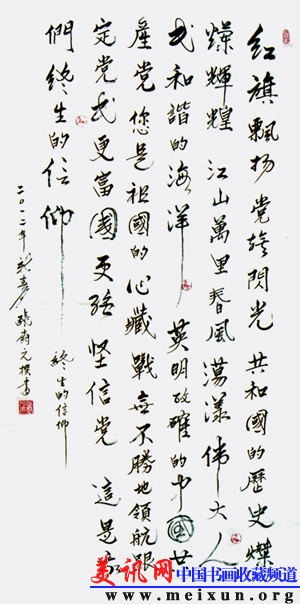 红旗飘扬 党旗閃光 共和國的歷史燦
爍輝煌 江山萬里春風蕩漾 伟大人
民和諧的海洋 英明政確的中國共
產党 您是祖國的心藏 戰無不勝地領航 跟
定党民更富國更强 坚信党 這是我
們終生的信仰
終生的信仰
二〇一二年 撰書
美讯网 中国书画收藏频道
www.meixun.org